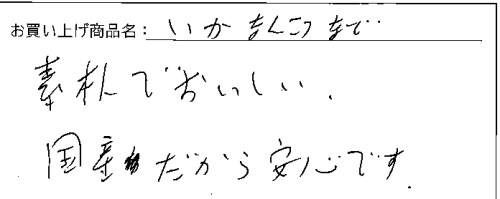 お買い上げ商品名：いかなんこつなど
素朴でおいしい.
国産だから安心です.